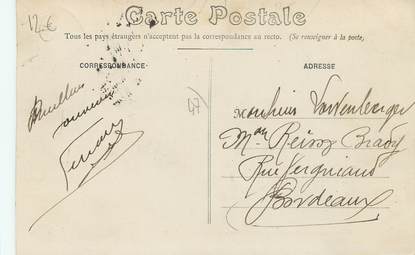 12 €
Carte Postale
Tous les pays étrangers n'acceptent pas la correspondance au recto. (Se renseigner à la poste)
CORRESPONDANCE
ADRESSE
Meilleurs
souvenirs
47)
Monsieur
Mon
Rue Vergniaud
Bordeaux